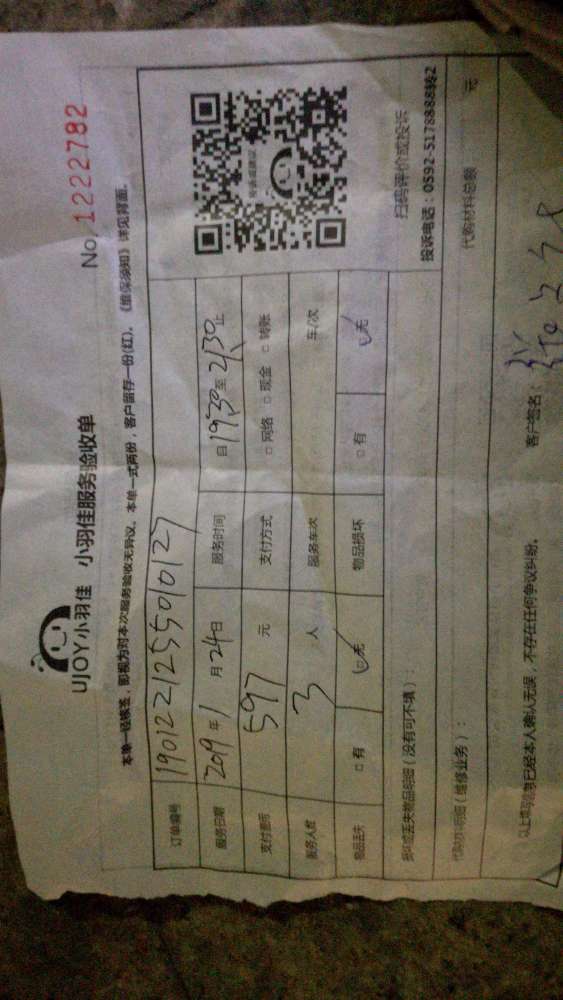 UJOY小羽佳 小羽佳服务验收单
No. 1222782
本单一经核签，即视为对本次服务验收无异议。本单一式两份，客户留存一份(红)。《维保须知》详见背面。
订单编号 190122125501012
服务日期 2019年1月24日 服务时间 自1930至2130止
支付费用 597元 支付方式 □网络 □现金 □转账
服务人数 3人 服务车次 车/次
物品丢失 □有 ☑无 物品损坏 □有 ☑无
扫码评价或投诉
投诉电话：0592-5178888转2
损坏或丢失物品明细（没有可不填）：
代购材料明细（维修业务）： 代购材料总额 元
以上填写信息已经本人确认无误，不存在任何争议纠纷。 客户签名：